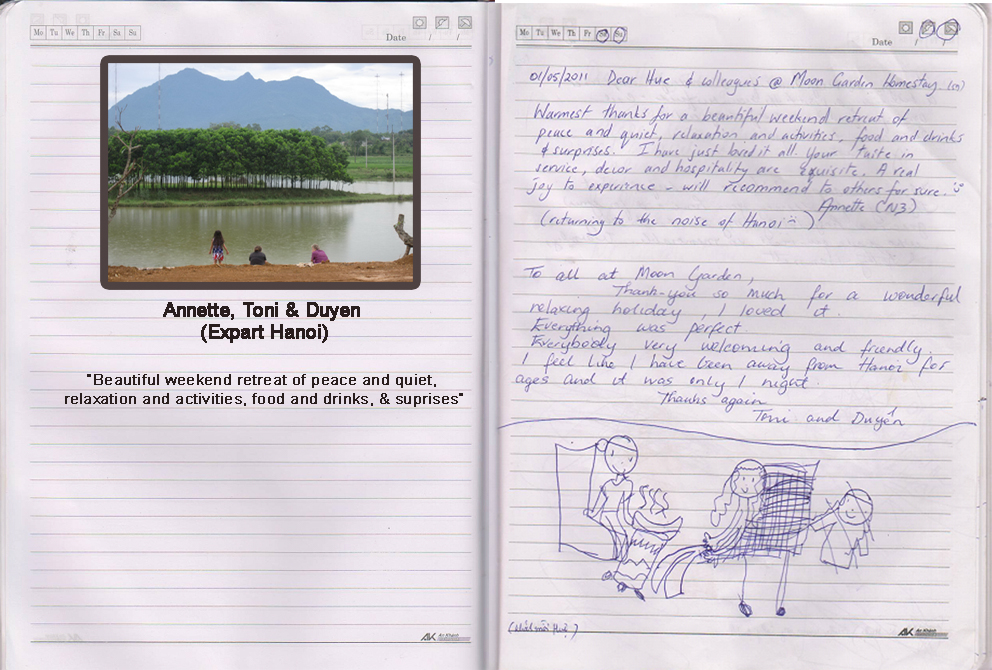 Mo Tu We Th Fr Sa Su
Date / /
Annette, Toni & Duyen
(Expart Hanoi)
"Beautiful weekend retreat of peace and quiet,
relaxation and activities, food and drinks, & suprises"
AK An Khánh
Mo Tu We Th Fr Sa Su
Date / /
01/05/2011 Dear Hue & colleagues @ Moon Garden Homestay.
Warmest thanks for a beautiful weekend retreat of
peace and quiet, relaxation and activities, food and drinks
& surprises. I have just loved it all. Your taste in
service, decor and hospitality are exquisite. A real
joy to experience - will recommend to others for sure.
Annette (N3)
(returning to the noise of Hanoi )
To all at Moon Garden,
Thank-you so much for a wonderful
relaxing holiday, I loved it.
Everything was perfect.
Everybody very welcoming and friendly.
I feel like I have been away from Hanoi for
ages and it was only 1 night.
Thanks again
Toni and Duyên
AK